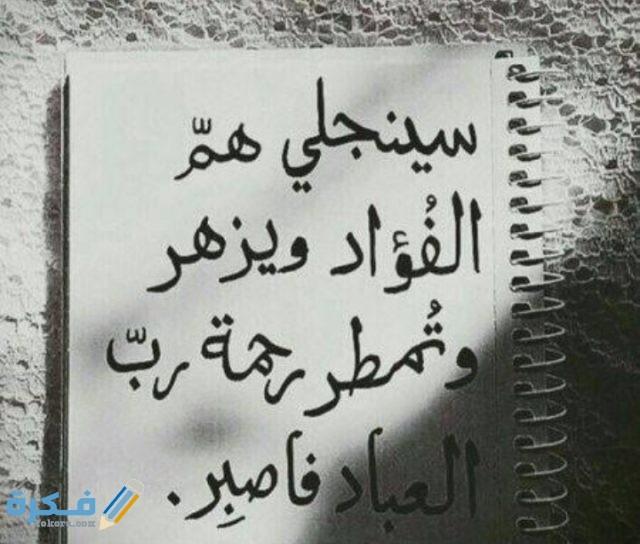 سينجلي همّ
الفُؤاد ويزهر
وتُمطر رحمة ربّ
العباد فاصبِر.
فكرة
fokera.com